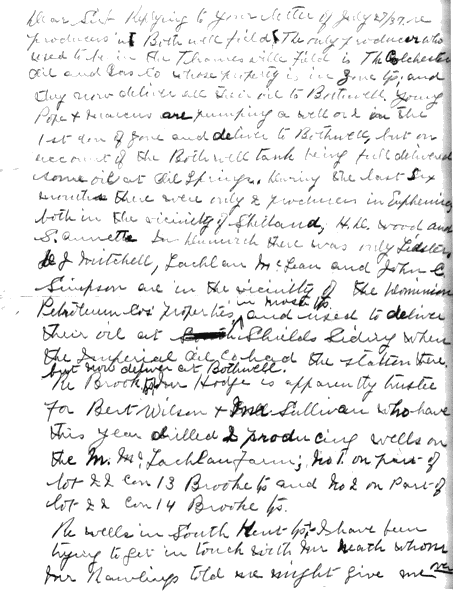 Dear Sir Replying to your letter of July 27/37. re
producers in Bothwell field The only producer who
used to be in the Thamesville field is The Colchester
Oil and Gas Co whose property is in Zone Tp, and
they now deliver all their oil to Bothwell. Young
Pope & are pumping a well on in the
1st con of Zone and deliver to Bothwell, but on
account of the Bothwell tank being full delivered
some oil at Oil Springs. During the last six
months there were only 2 producers in Euphemia
both in the vicinity of Shetland, H.D. Wood and
S. Annett. In there was only
J Mitchell, Lachlan McLean and John C
Simpson are in the vicinity of the Dominion
Petroleum Cos' properties in Mosa Tp. and used to deliver
their oil at Shields Siding when
the Imperial Oil Co had the station there.
but now deliver at Bothwell.
Re Brooke Tp Mr Hodge is apparently trustee
for Bert Wilson & Sullivan who have
this year drilled 2 producing wells on
the M. McLachlan farm; No 1. on part of
lot 22 Con 13 Brooke Tp and No 2 on Part of
lot 22 Con 14 Brooke Tp.
Re wells in South Kent Tps, I have been
trying to get in touch with Mr Heath whom
Mr Rawlings told me might give me